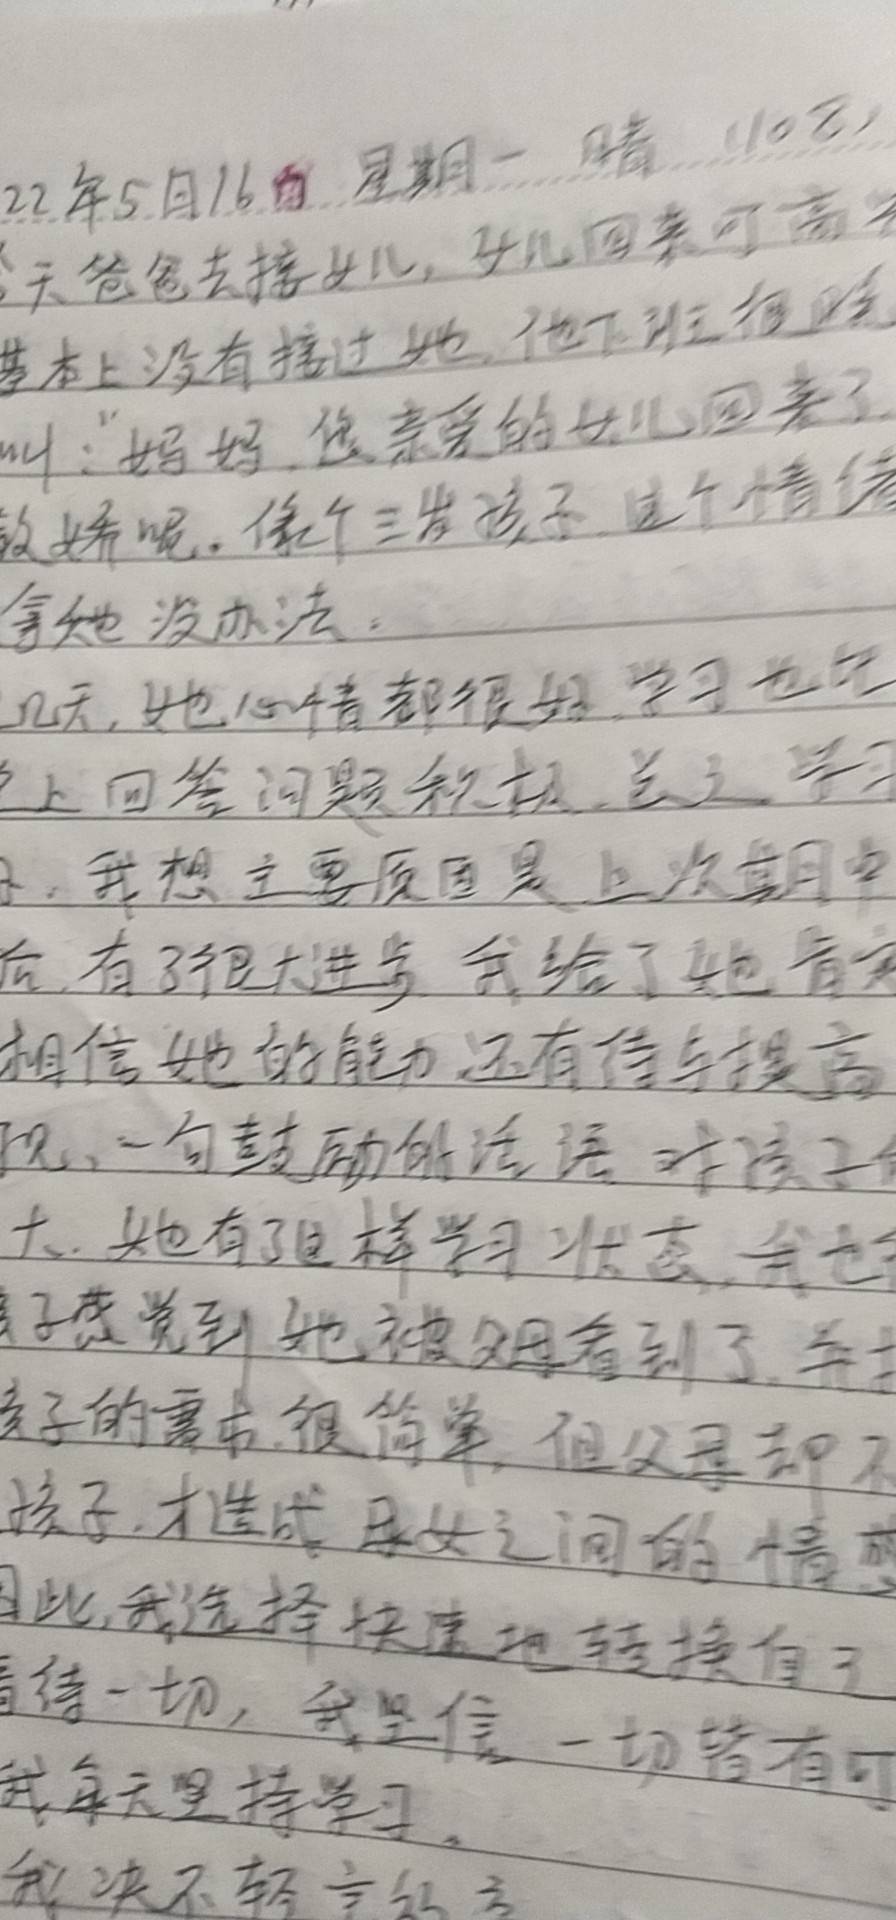 22年5月16日 星期一 晴 (108)
天爸爸去接女儿,女儿回来可高
基本上没有接过她,他下班很晚
叫:"妈妈,您亲爱的女儿回来了
娇呢。像个三岁孩子,这个情绪
拿她没办法.
几天,她心情都很好,学习也比
上回答问题积极,总之,学习
,我想主要原因是上次期中
后,有了很大进步,我给了她肯定
相信她的能力还有待与提高
现、一句鼓励的话语 对孩子
大.她有了这样学习状态,我也
子感觉到她被父母看到了,并
孩子的需求很简单,但父母却不
孩子,才造成母女之间的情感
因此,我选择快速地转换自己
看待一切,我坚信一切皆有可
我每天坚持学习。
我决不轻言